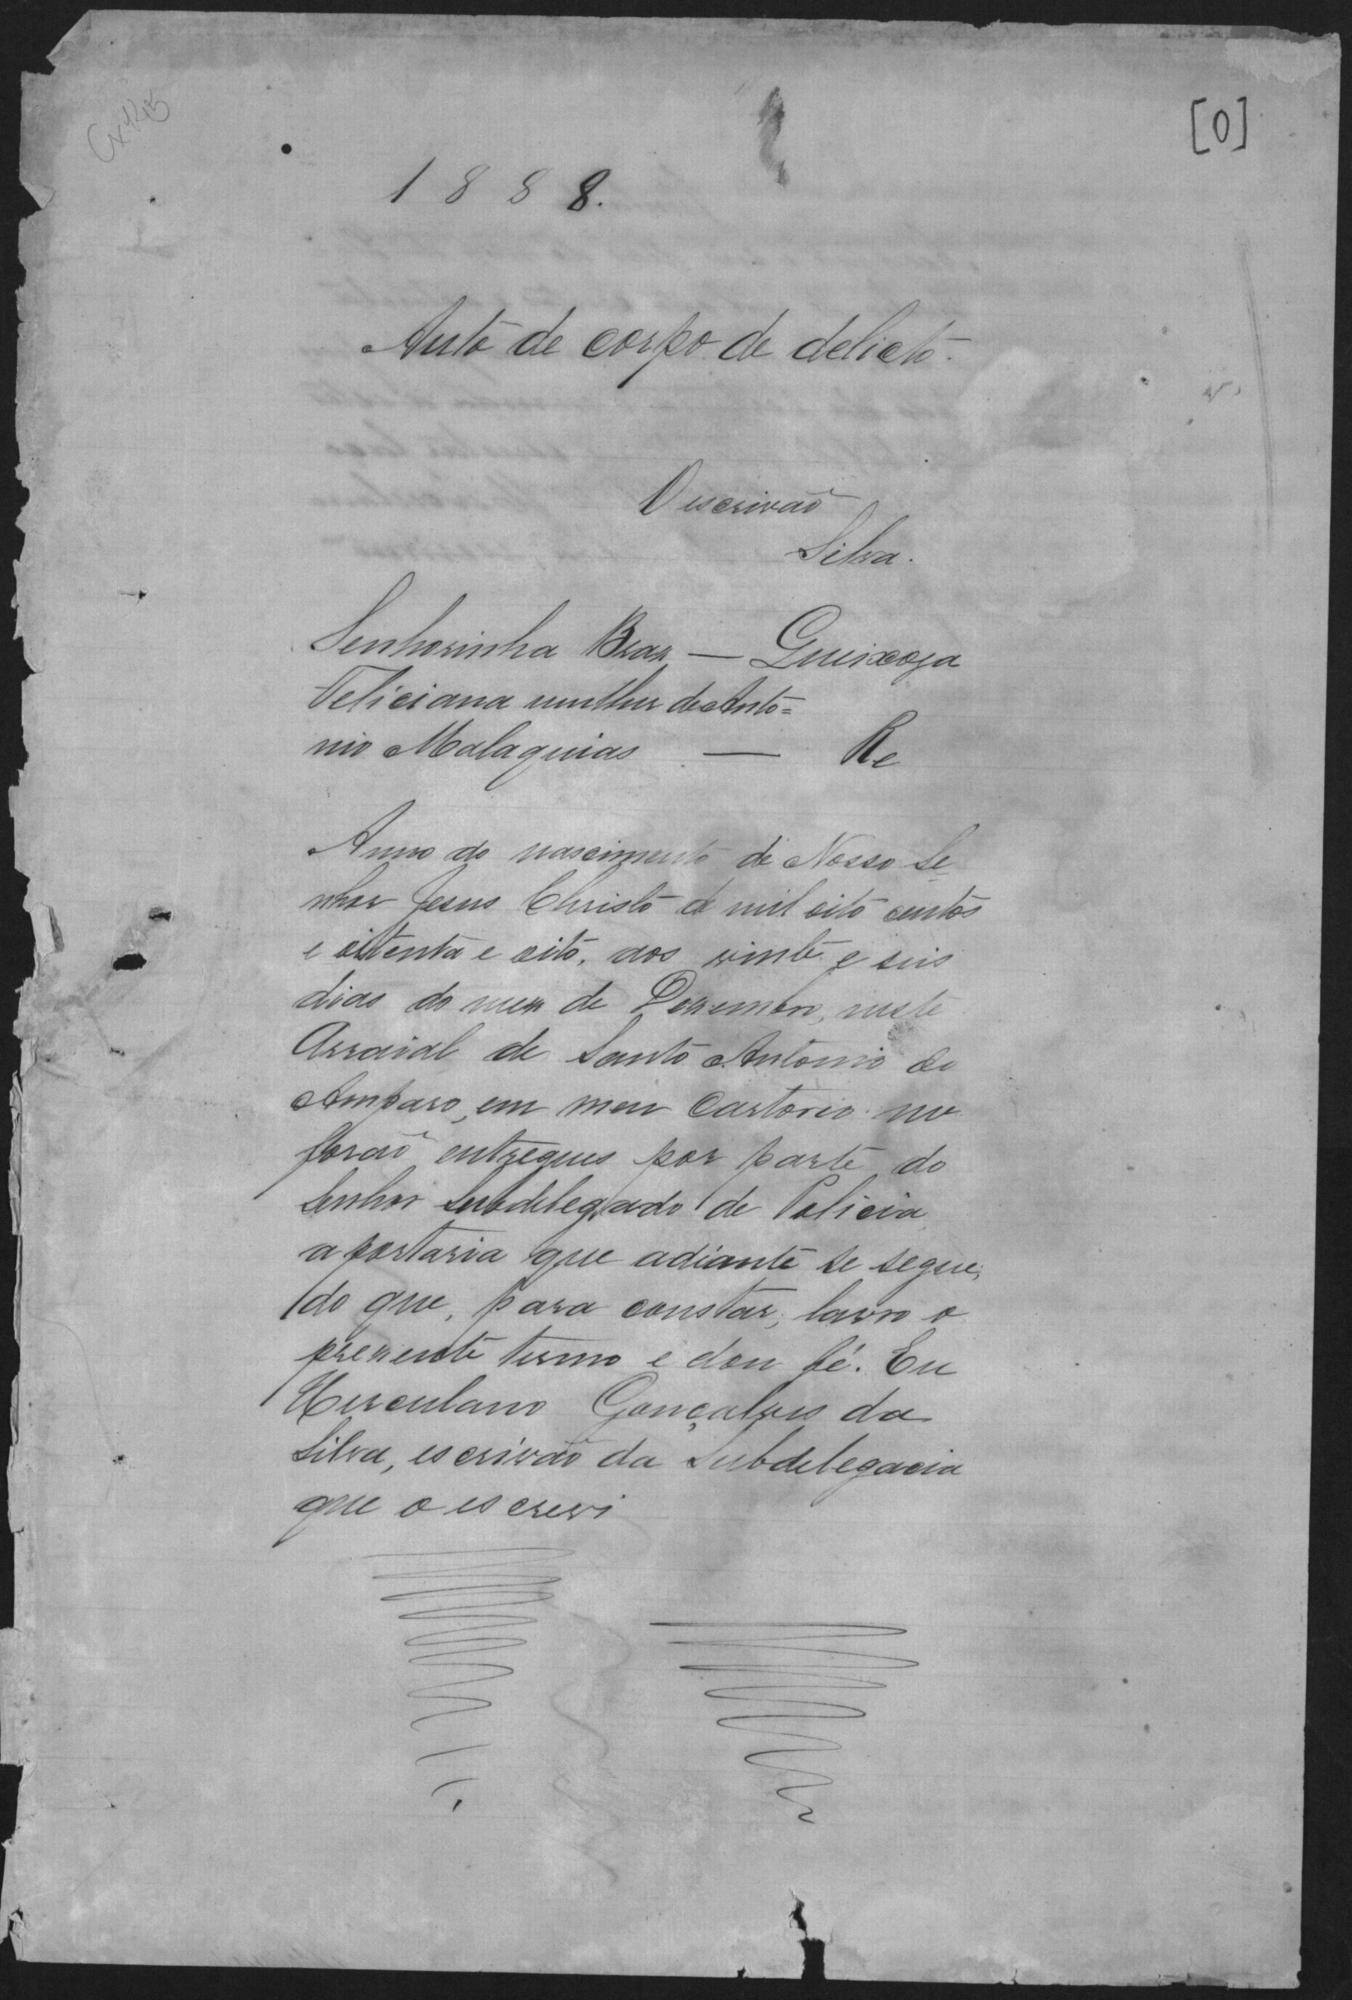 [0]
1888.
Auto de corpo de delicto.
O escrivaõ
Silva.
Senhorinha Braz — Queixoza
Feliciana mulher de Anto=
nio Malaquias — Re
Anno do nascimento de Nosso Se
nhor Jesus Christo de mil oito centos
e oitenta e oito, aos vinte e seis
dias do mez de Dezembro, neste
Arraial de Santo Antonio do
Amparo, em meu Cartorio me
foraõ entregues por parte do
Senhor Subdelegado de Policia
a portaria que adiante se segue;
do que, para constar, lavro o
prezente termo e dou fé. Eu
Herculano Gonçalves da
Silva, escrivaõ da Subdelegacia
que o escrevi